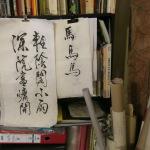 輕陰閣小雨
深院晝慵開
馬馬馬